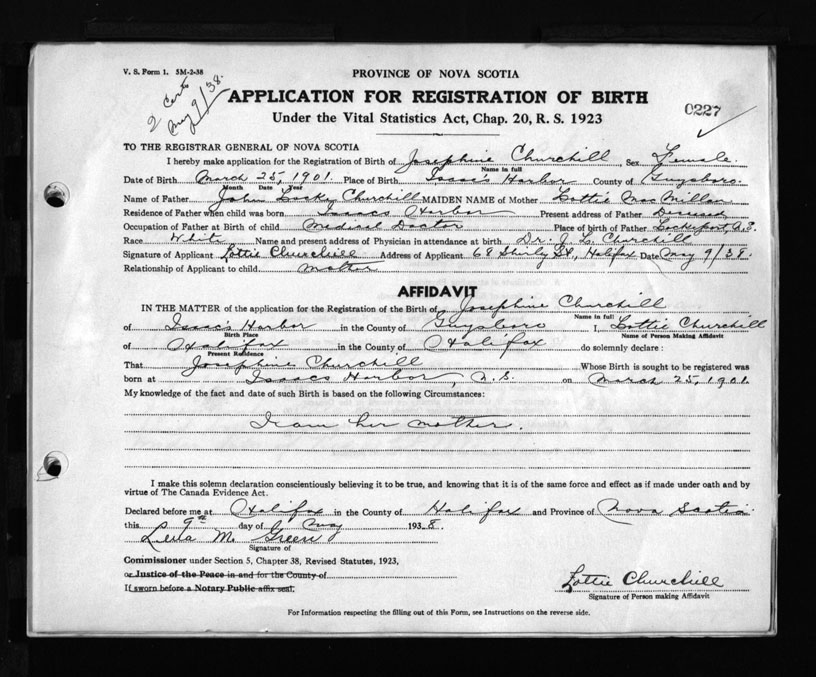 V. S. Form 1. 5M-2-38
2 Certs
May 9/38.
PROVINCE OF NOVA SCOTIA
APPLICATION FOR REGISTRATION OF BIRTH
0227
Under the Vital Statistics Act, Chap. 20, R. S. 1923
TO THE REGISTRAR GENERAL OF NOVA SCOTIA
I hereby make application for the Registration of Birth of Josephine Churchill, Sex Female.
Name in full
Date of Birth March 25, 1901. Place of Birth Isaac's Harbor County of Guysboro.
Month Date Year
Name of Father John Churchill MAIDEN NAME of Mother Lottie MacMillan
Residence of Father when child was born Isaacs Harbor Present address of Father Deceased
Occupation of Father at Birth of child Medical Doctor Place of birth of Father Lockeport, N.S.
Race White Name and present address of Physician in attendance at birth Dr. J. L. Churchill
Signature of Applicant Lottie Churchill Address of Applicant 68 Shirly St, Halifax Date May 9/38.
Relationship of Applicant to child mother
AFFIDAVIT
IN THE MATTER of the application for the Registration of the Birth of Josephine Churchill
Name in full
of Isaac's Harbor in the County of Guysboro I, Lottie Churchill
Birth Place Name of Person Making Affidavit
of Halifax in the County of Halifax do solemnly declare:
Present Residence
That Josephine Churchill Whose Birth is sought to be registered was
born at Isaacs Harbor, N.S. on March 25, 1901.
My knowledge of the fact and date of such Birth is based on the following Circumstances:
I am her mother.
I make this solemn declaration conscientiously believing it to be true, and knowing that it is of the same force and effect as if made under oath and by
virtue of The Canada Evidence Act.
Declared before me at Halifax in the County of Halifax and Province of Nova Scotia
this 9th day of May 1938.
Lena M. Green
Signature of
Commissioner under Section 5, Chapter 38, Revised Statutes, 1923,
or Justice of the Peace in and for the County of
If sworn before a Notary Public affix seal.
Lottie Churchill
Signature of Person making Affidavit
For Information respecting the filling out of this Form, see Instructions on the reverse side.